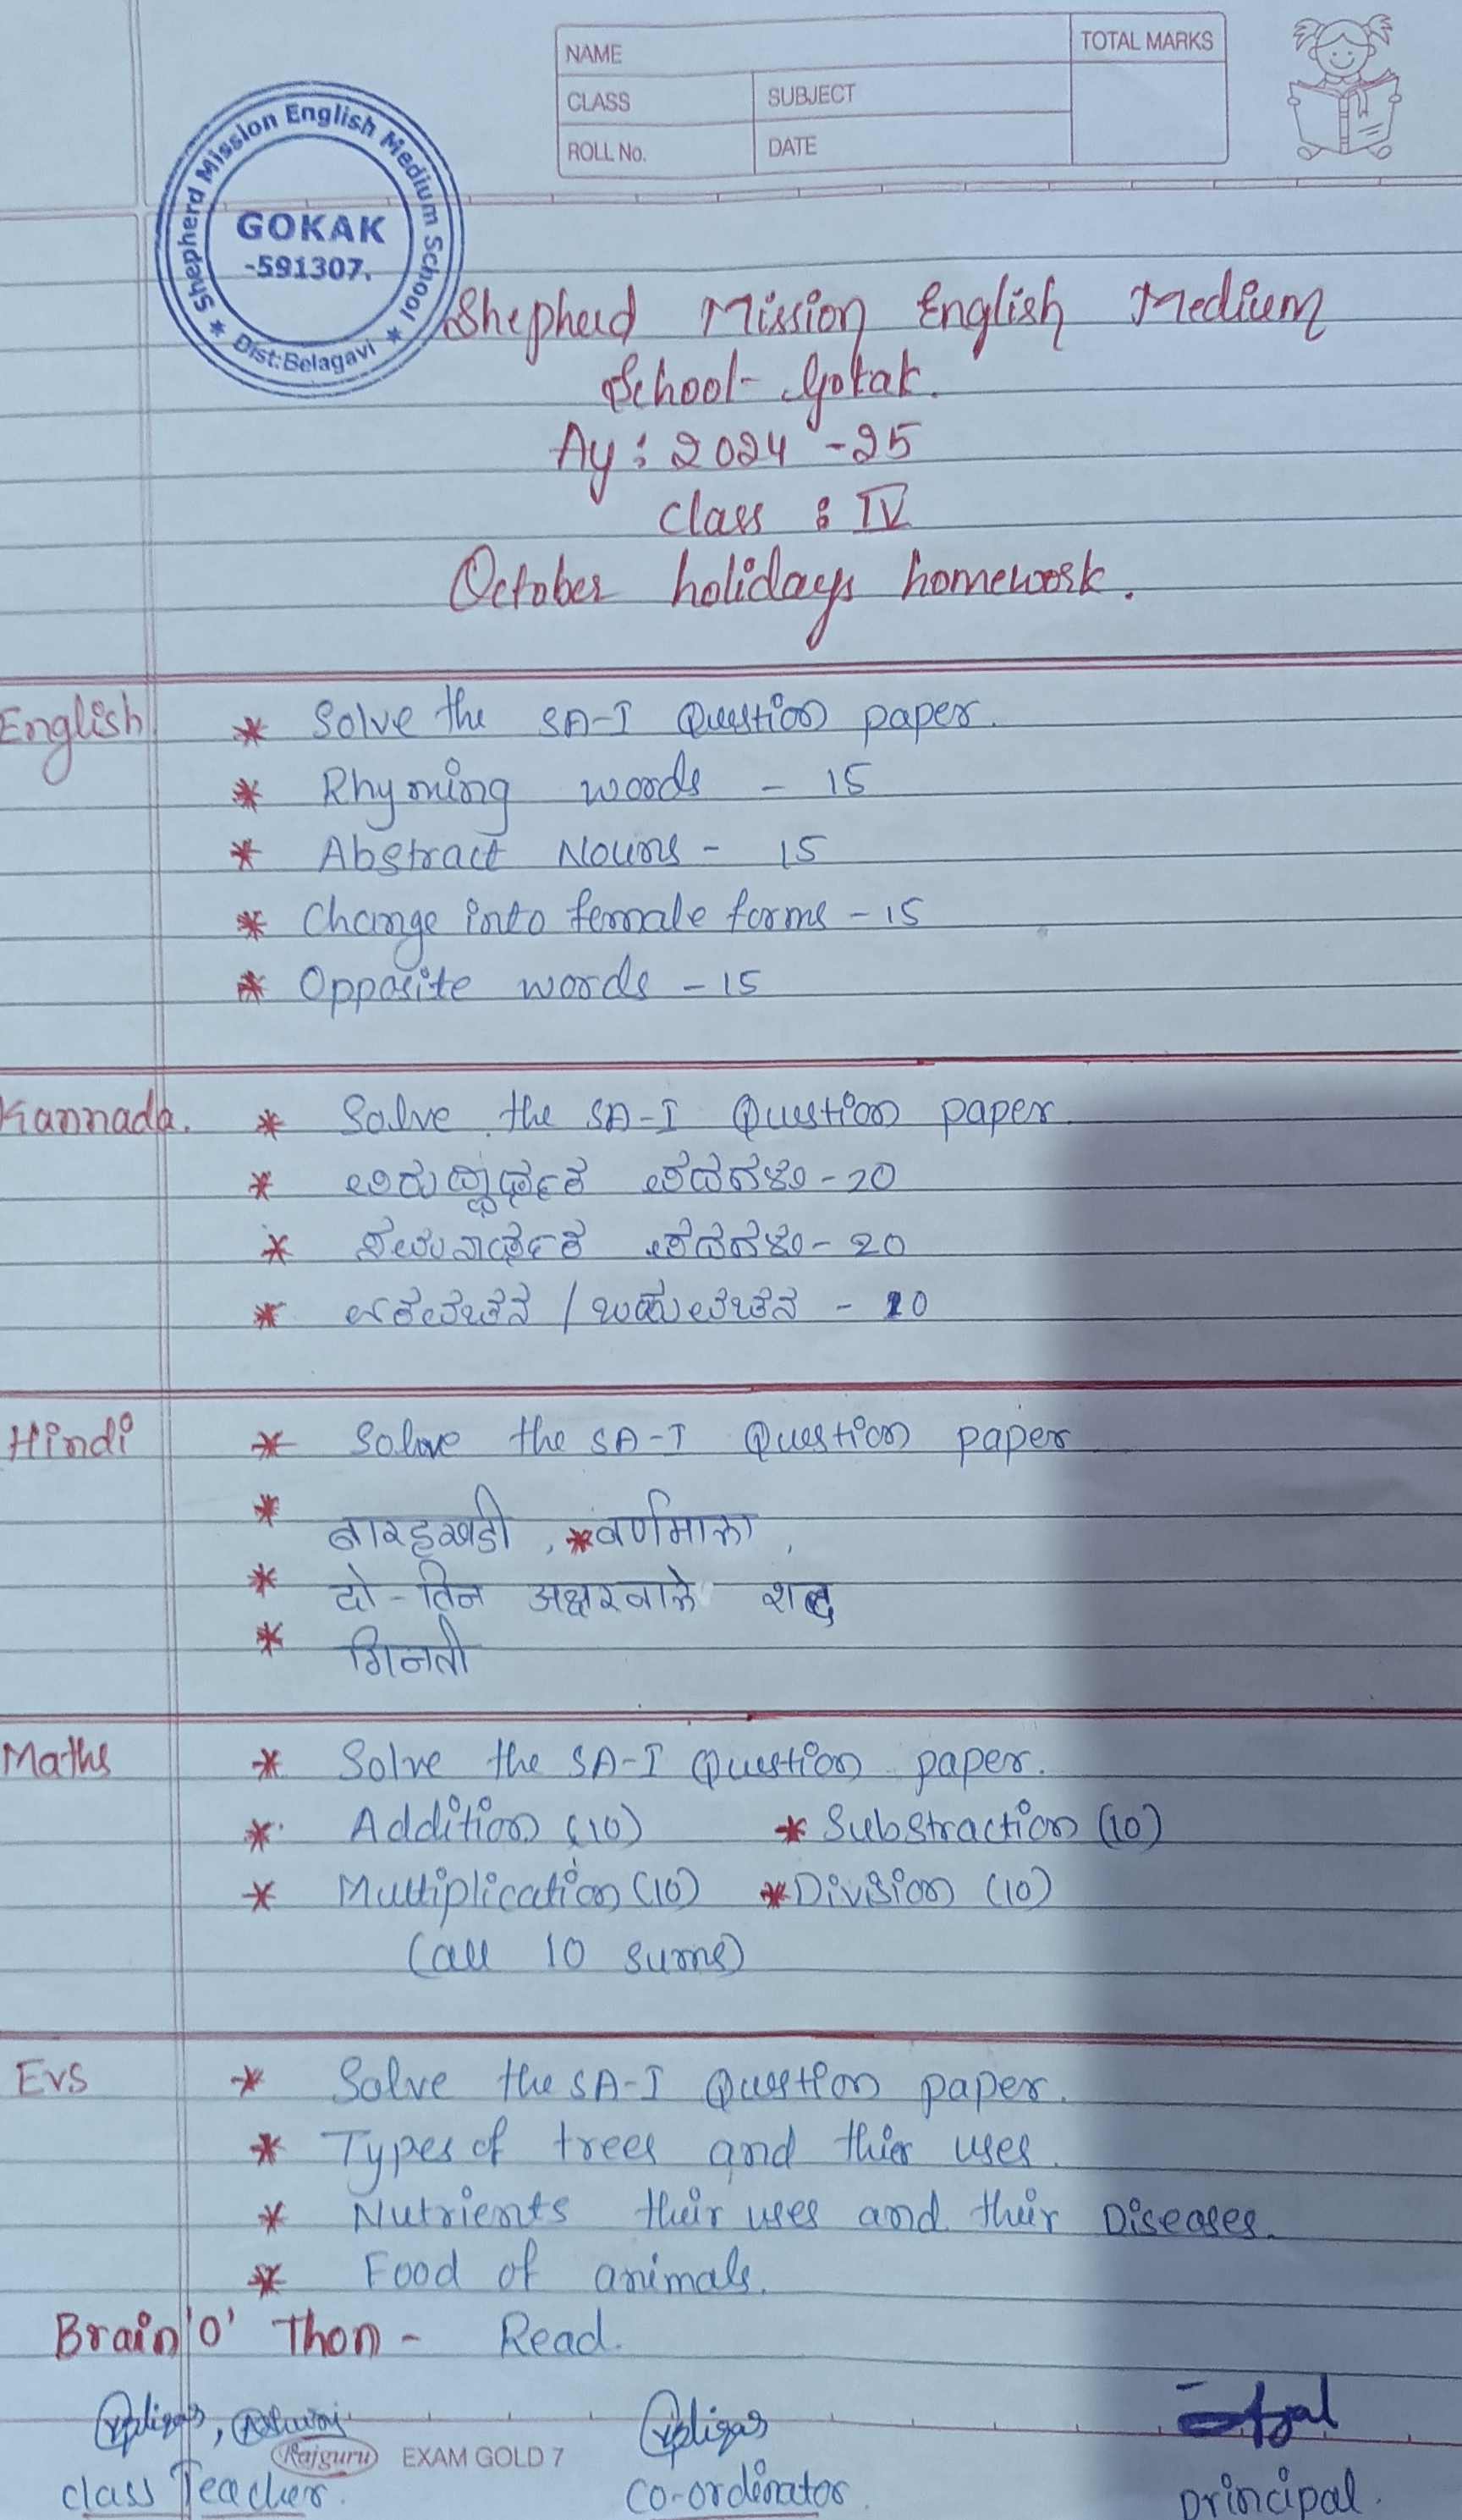 NAME
TOTAL MARKS
CLASS
SUBJECT
ROLL No.
DATE
Shepherd Mission English Medium School
GOKAK
-591307.
Dist:Belagavi
Shepherd Mission English Medium
School- Gokak.
Ay : 2024 -25
Class : IV
October holidays homework.
English * Solve the SA-I Question paper.
* Rhyming words - 15
* Abstract Nouns - 15
* Change into female forms - 15
* Opposite words - 15
Kannada. * Solve the SA-I Question paper
* ವಿರುದ್ಧಾರ್ಥಕ ಪದಗಳು - 20
* ಸಮನಾರ್ಥಕ ಪದಗಳು - 20
* ಏಕವಚನ / ಬಹುವಚನ - 20
Hindi * Solve the SA-I Question paper
* बारहखडी , * वर्णमाला ,
* दो - तिन अक्षरवाले शब्द
* गिनती
Maths * Solve the SA-I Question paper.
* Addition (10) * Substraction (10)
* Multiplication (10) * Division (10)
(all 10 sums)
Evs * Solve the SA-I Question paper.
* Types of trees and thier uses.
* Nutrients their uses and their Diseases.
* Food of animals.
Brain 'O' Thon - Read.
Rajguru EXAM GOLD 7
class Teacher. co-ordinator. principal.